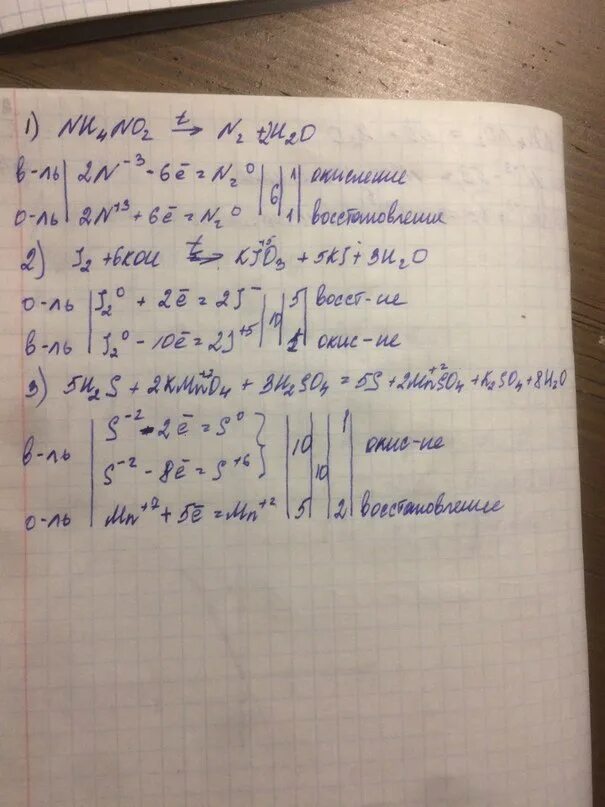 1) NH4NO2 t→ N2 + 2H2O
в-ль | 2N⁻³ - 6ē = N2⁰ | 6 | 1 | окисление
о-ль | 2N⁺³ + 6ē = N2⁰ | | 1 | восстановление
2) J2 + 6KOH t→ KJ⁺⁵O3 + 5KJ + 3H2O
о-ль | J2⁰ + 2ē = 2J⁻ | 10 | 5 | восст-ие
в-ль | J2⁰ - 10ē = 2J⁺⁵ | | 1 | окис-ие
3) 5H2S + 2KMn⁺⁷O4 + 3H2SO4 = 5S + 2Mn⁺²SO4 + K2SO4 + 8H2O
в-ль | S⁻² - 2ē = S⁰ } | 10 | | 1 | окис-ие
S⁻² - 8ē = S⁺⁶ } | | 10
о-ль | Mn⁺⁷ + 5ē = Mn⁺² | 5 | | 2 | восстановление